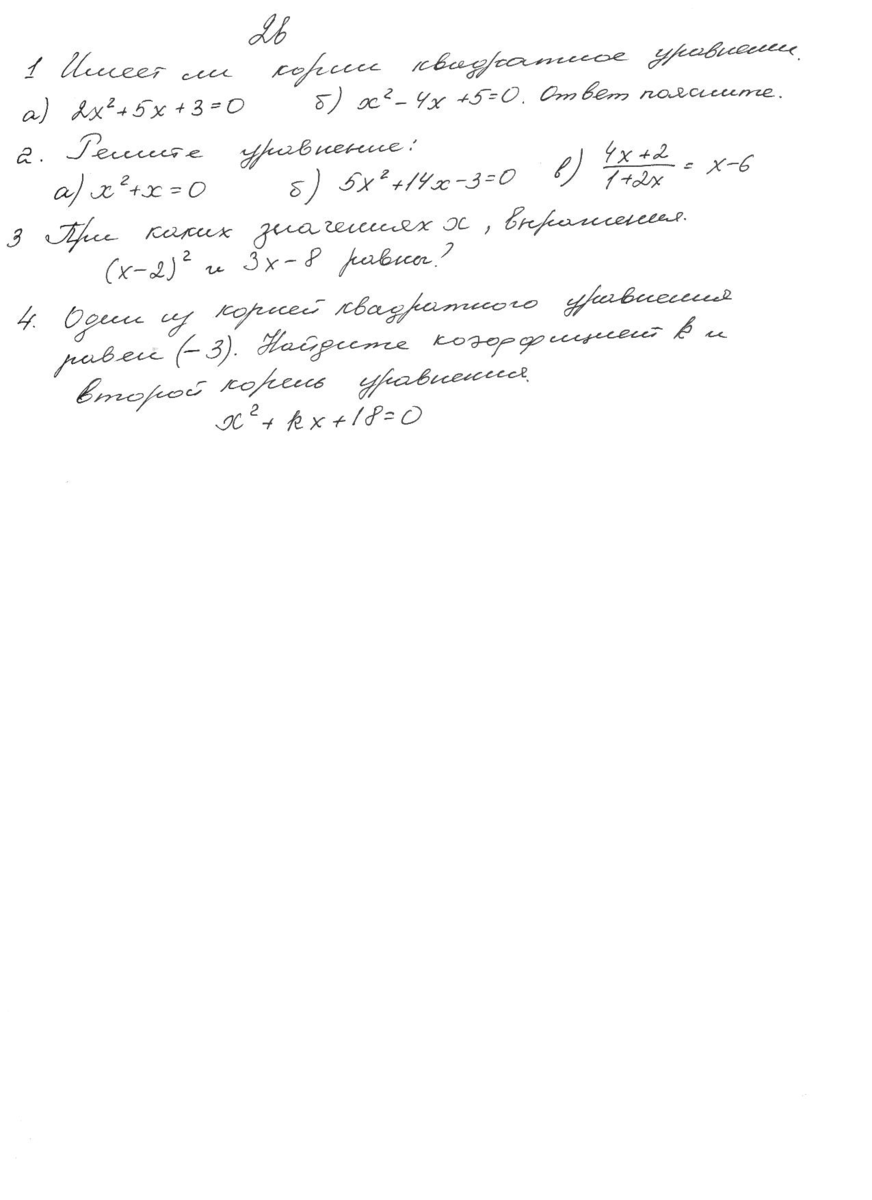 2в
1 Имеет ли корни квадратное уравнение.
а) 2x²+5x+3=0 б) x²-4x+5=0. Ответ поясните.
2. Решите уравнение:
а) x²+x=0 б) 5x²+14x-3=0 в) (4x+2)/(1+2x) = x-6
3 При каких значениях x, выражения.
(x-2)² и 3x-8 равны?
4. Один из корней квадратного уравнения
равен (-3). Найдите коэффициент k и
второй корень уравнения.
x²+kx+18=0